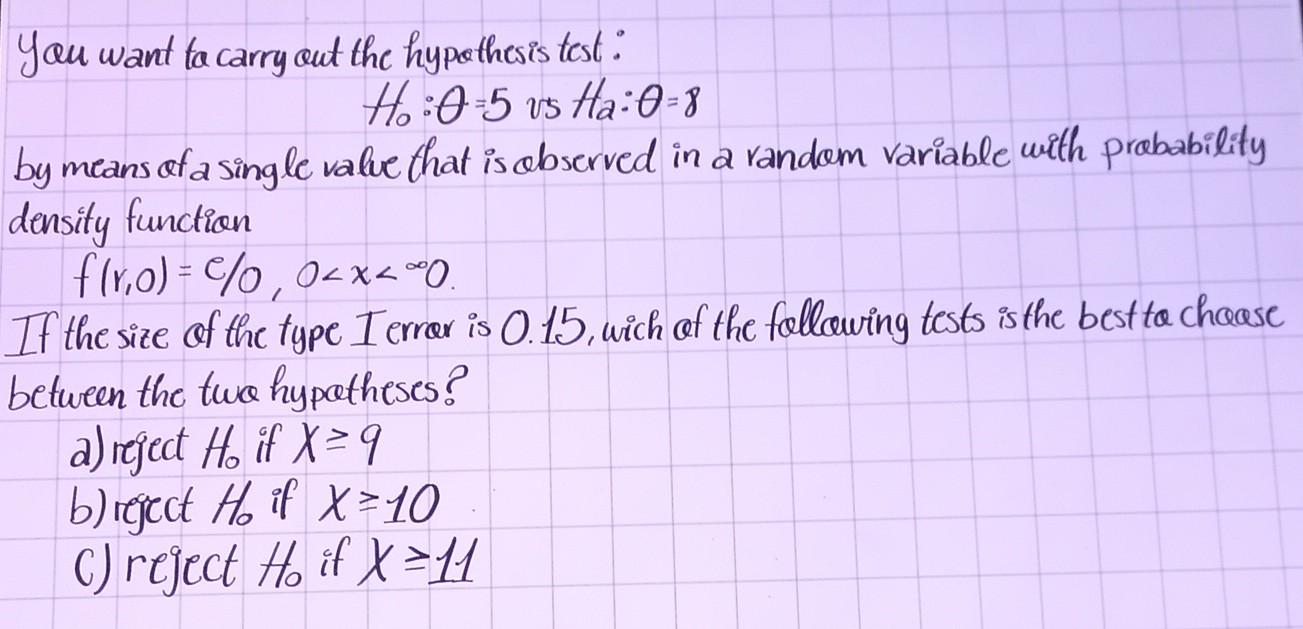 You want to carry out the hypothesis test:
H₀:θ=5 vs Ha:θ=8
by means of a single value that is observed in a random variable with probability
density function
f(r,0) = c/0, 0<x<∞0.
If the size of the type I error is 0.15, wich of the following tests is the best to choose
between the two hypotheses?
a) reject H₀ if X≥9
b) reject H₀ if X≥10
C) reject H₀ if X≥11